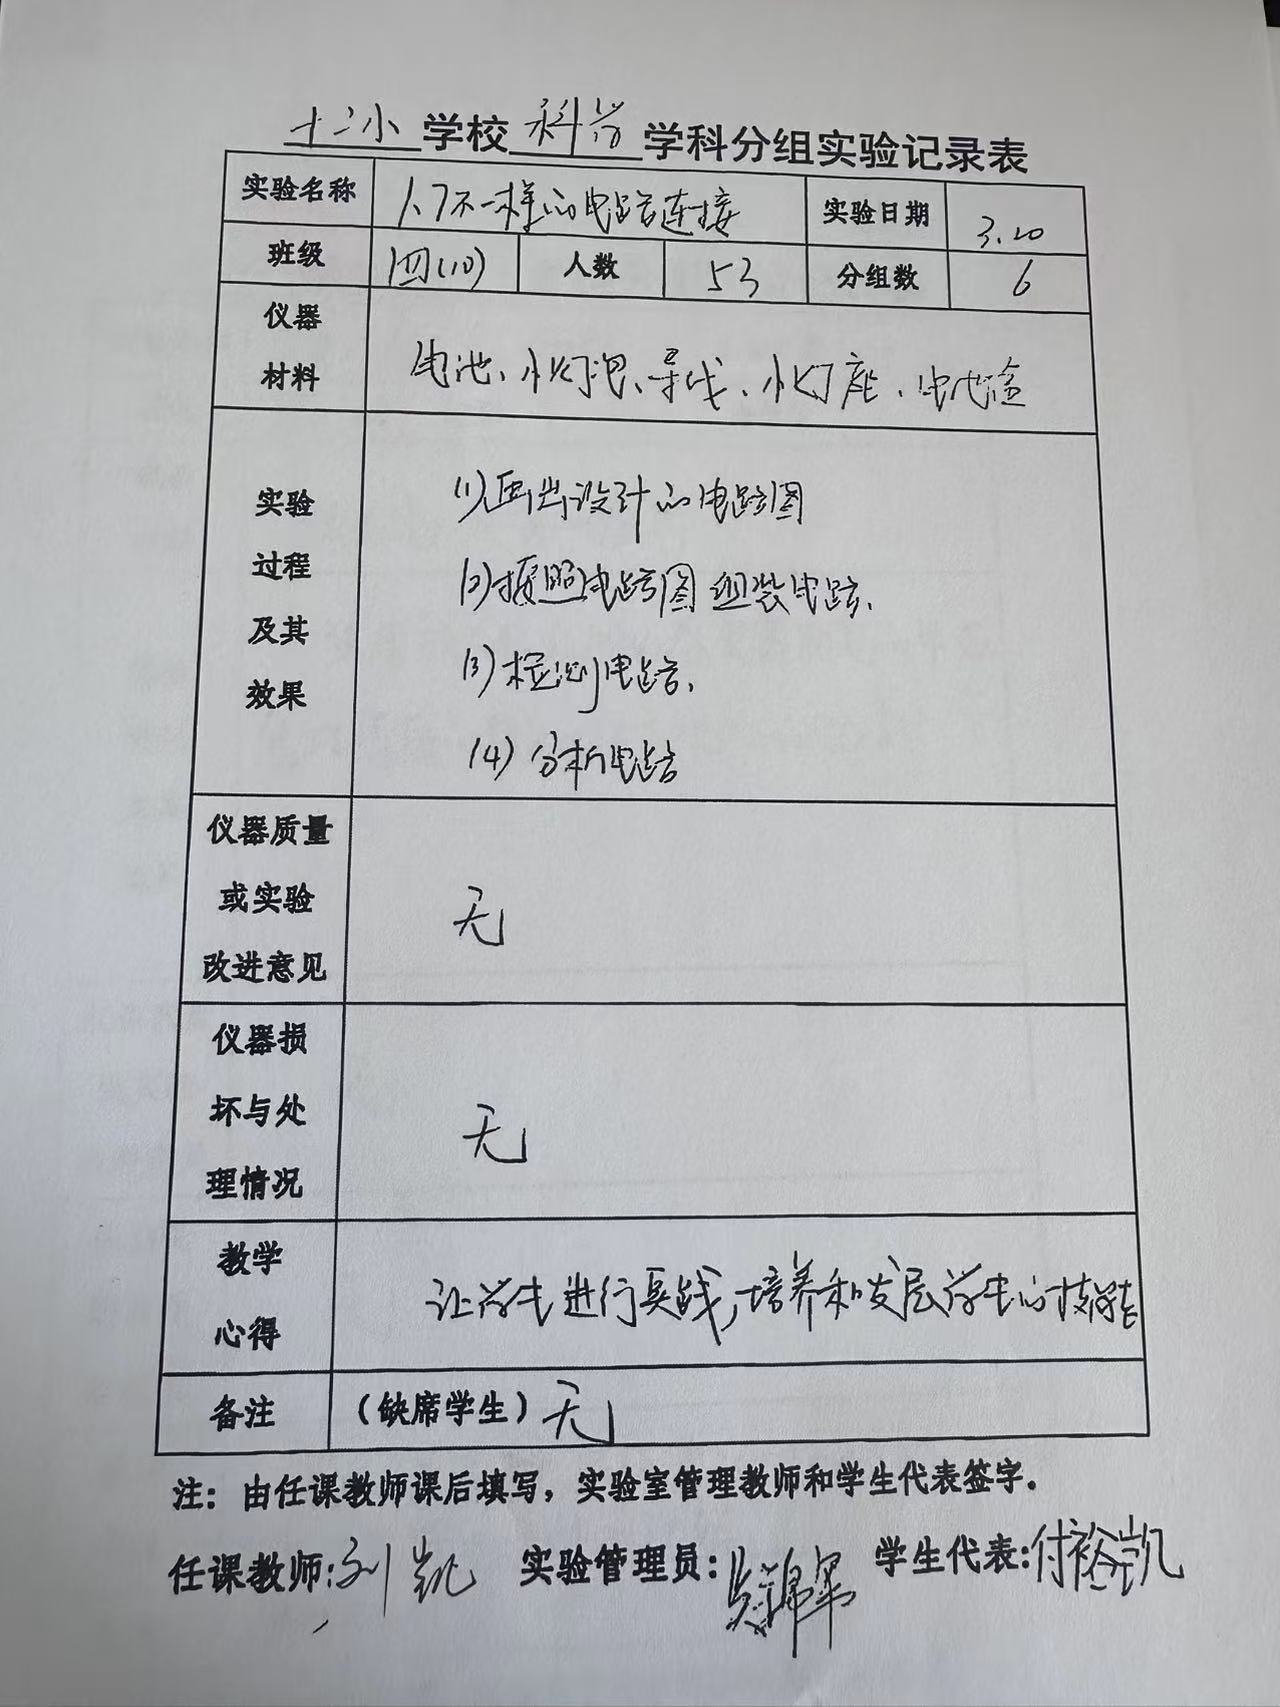 十二小学校科学学科分组实验记录表
实验名称 1.7不一样的电路连接 实验日期 3.20
班级 四(10) 人数 53 分组数 6
仪器
材料
电池、小灯泡、导线、小灯座、电池盒
实验
过程
及其
效果
(1)画出设计的电路图
(2)按照电路图组装电路.
(3)检测电路.
(4)分析电路
仪器质量
或实验
改进意见
无
仪器损
坏与处
理情况
无
教学
心得
让学生进行实践,培养和发展学生的技能
备注 (缺席学生)无
注：由任课教师课后填写，实验室管理教师和学生代表签字.
任课教师:刘凯 实验管理员: 学生代表:付裕凯